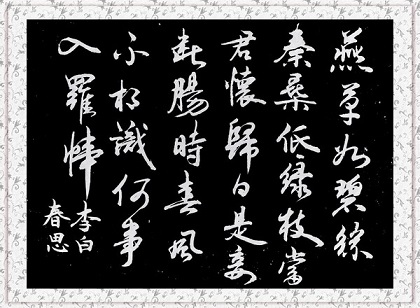 燕草如碧絲
秦桑低綠枝當
君懷歸日是妾
斷腸時春風
不相識何事
入羅幃
李白
春思